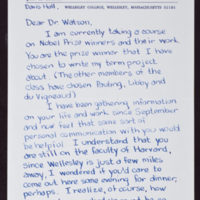 Davis Hall, WELLESLEY COLLEGE, WELLESLEY, MASSACHUSETTS 02181
Dear Dr. Watson,
I am currently taking a course
on Nobel Prize winners and their work.
You are the prize winner that I have
chosen to write my term project
about. (The other members of the
class have chosen Pauling, Libby and
du Vigneaud.)
I have been gathering information
on your life and work since September
and now feel that some sort of
personal communication with you would
be helpful. I understand that you
are still on the faculty of Harvard,
Since Wellesley is just a few miles
away, I wondered if you'd care to
come out here some evening for dinner,
perhaps. I realize, of course, how